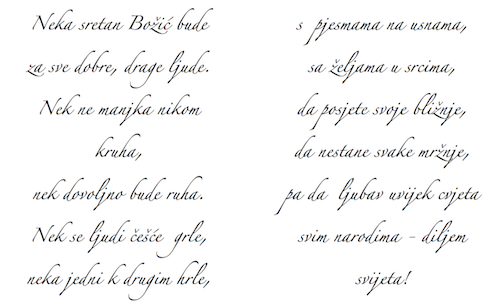 Neka sretan Božić bude
za sve dobre, drage ljude.
Nek ne manjka nikom
kruha,
nek dovoljno bude ruha.
Nek se ljudi češće grle,
neka jedni k drugim hrle,
s pjesmama na usnama,
sa željama u srcima,
da posjete svoje bližnje,
da nestane svake mržnje,
pa da ljubav uvijek cvjeta
svim narodima - diljem
svijeta!